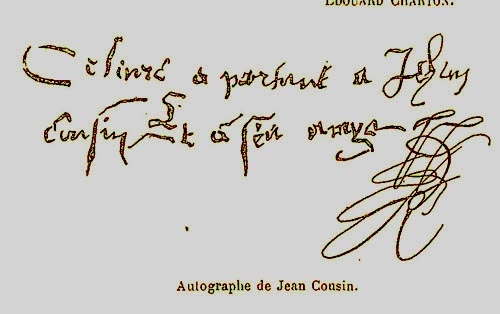 EDOUARD CHARTON.
Ce livre a partient a Jehan
Cousin Et a sēs amys
Autographe de Jean Cousin.